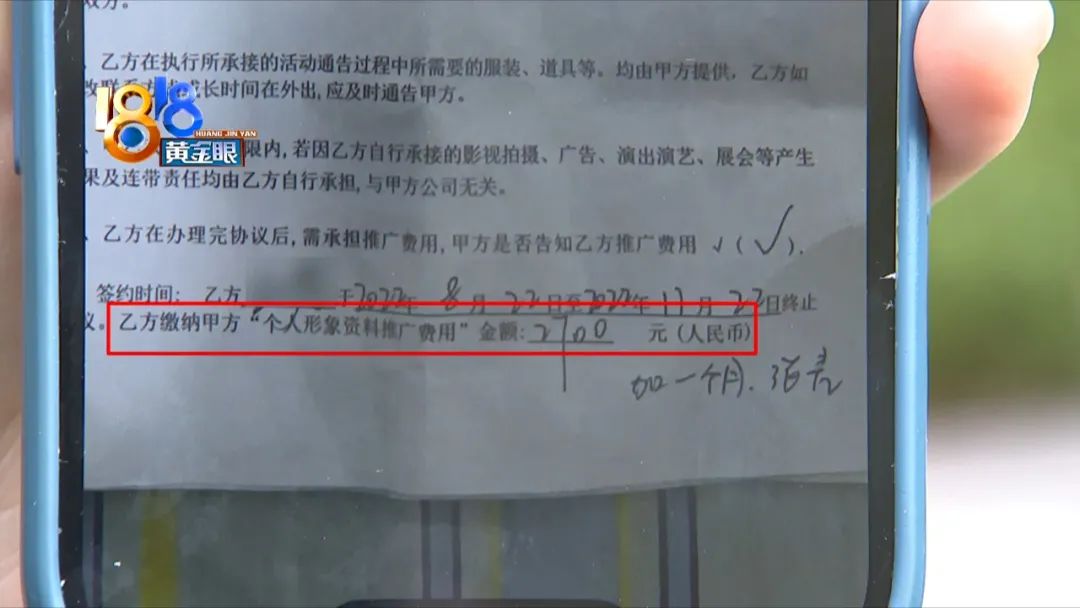 双方。
、乙方在执行所承接的活动通告过程中所需要的服装、道具等。均由甲方提供,乙方如
改联系方 成长时间在外出,应及时通告甲方。
1818
HUANG JIN YAN
黄金眼
限内,若因乙方自行承接的影视拍摄、广告、演出演艺、展会等产生
果及连带责任均由乙方自行承担,与甲方公司无关。
、乙方在办理完协议后,需承担推广费用,甲方是否告知乙方推广费用 √(√).
签约时间: 乙方 于2022年 8月 22日至2022年 11月 22日终止
议。乙方缴纳甲方“个人形象资料推广费用”金额:2700 元(人民币)
加一个月.